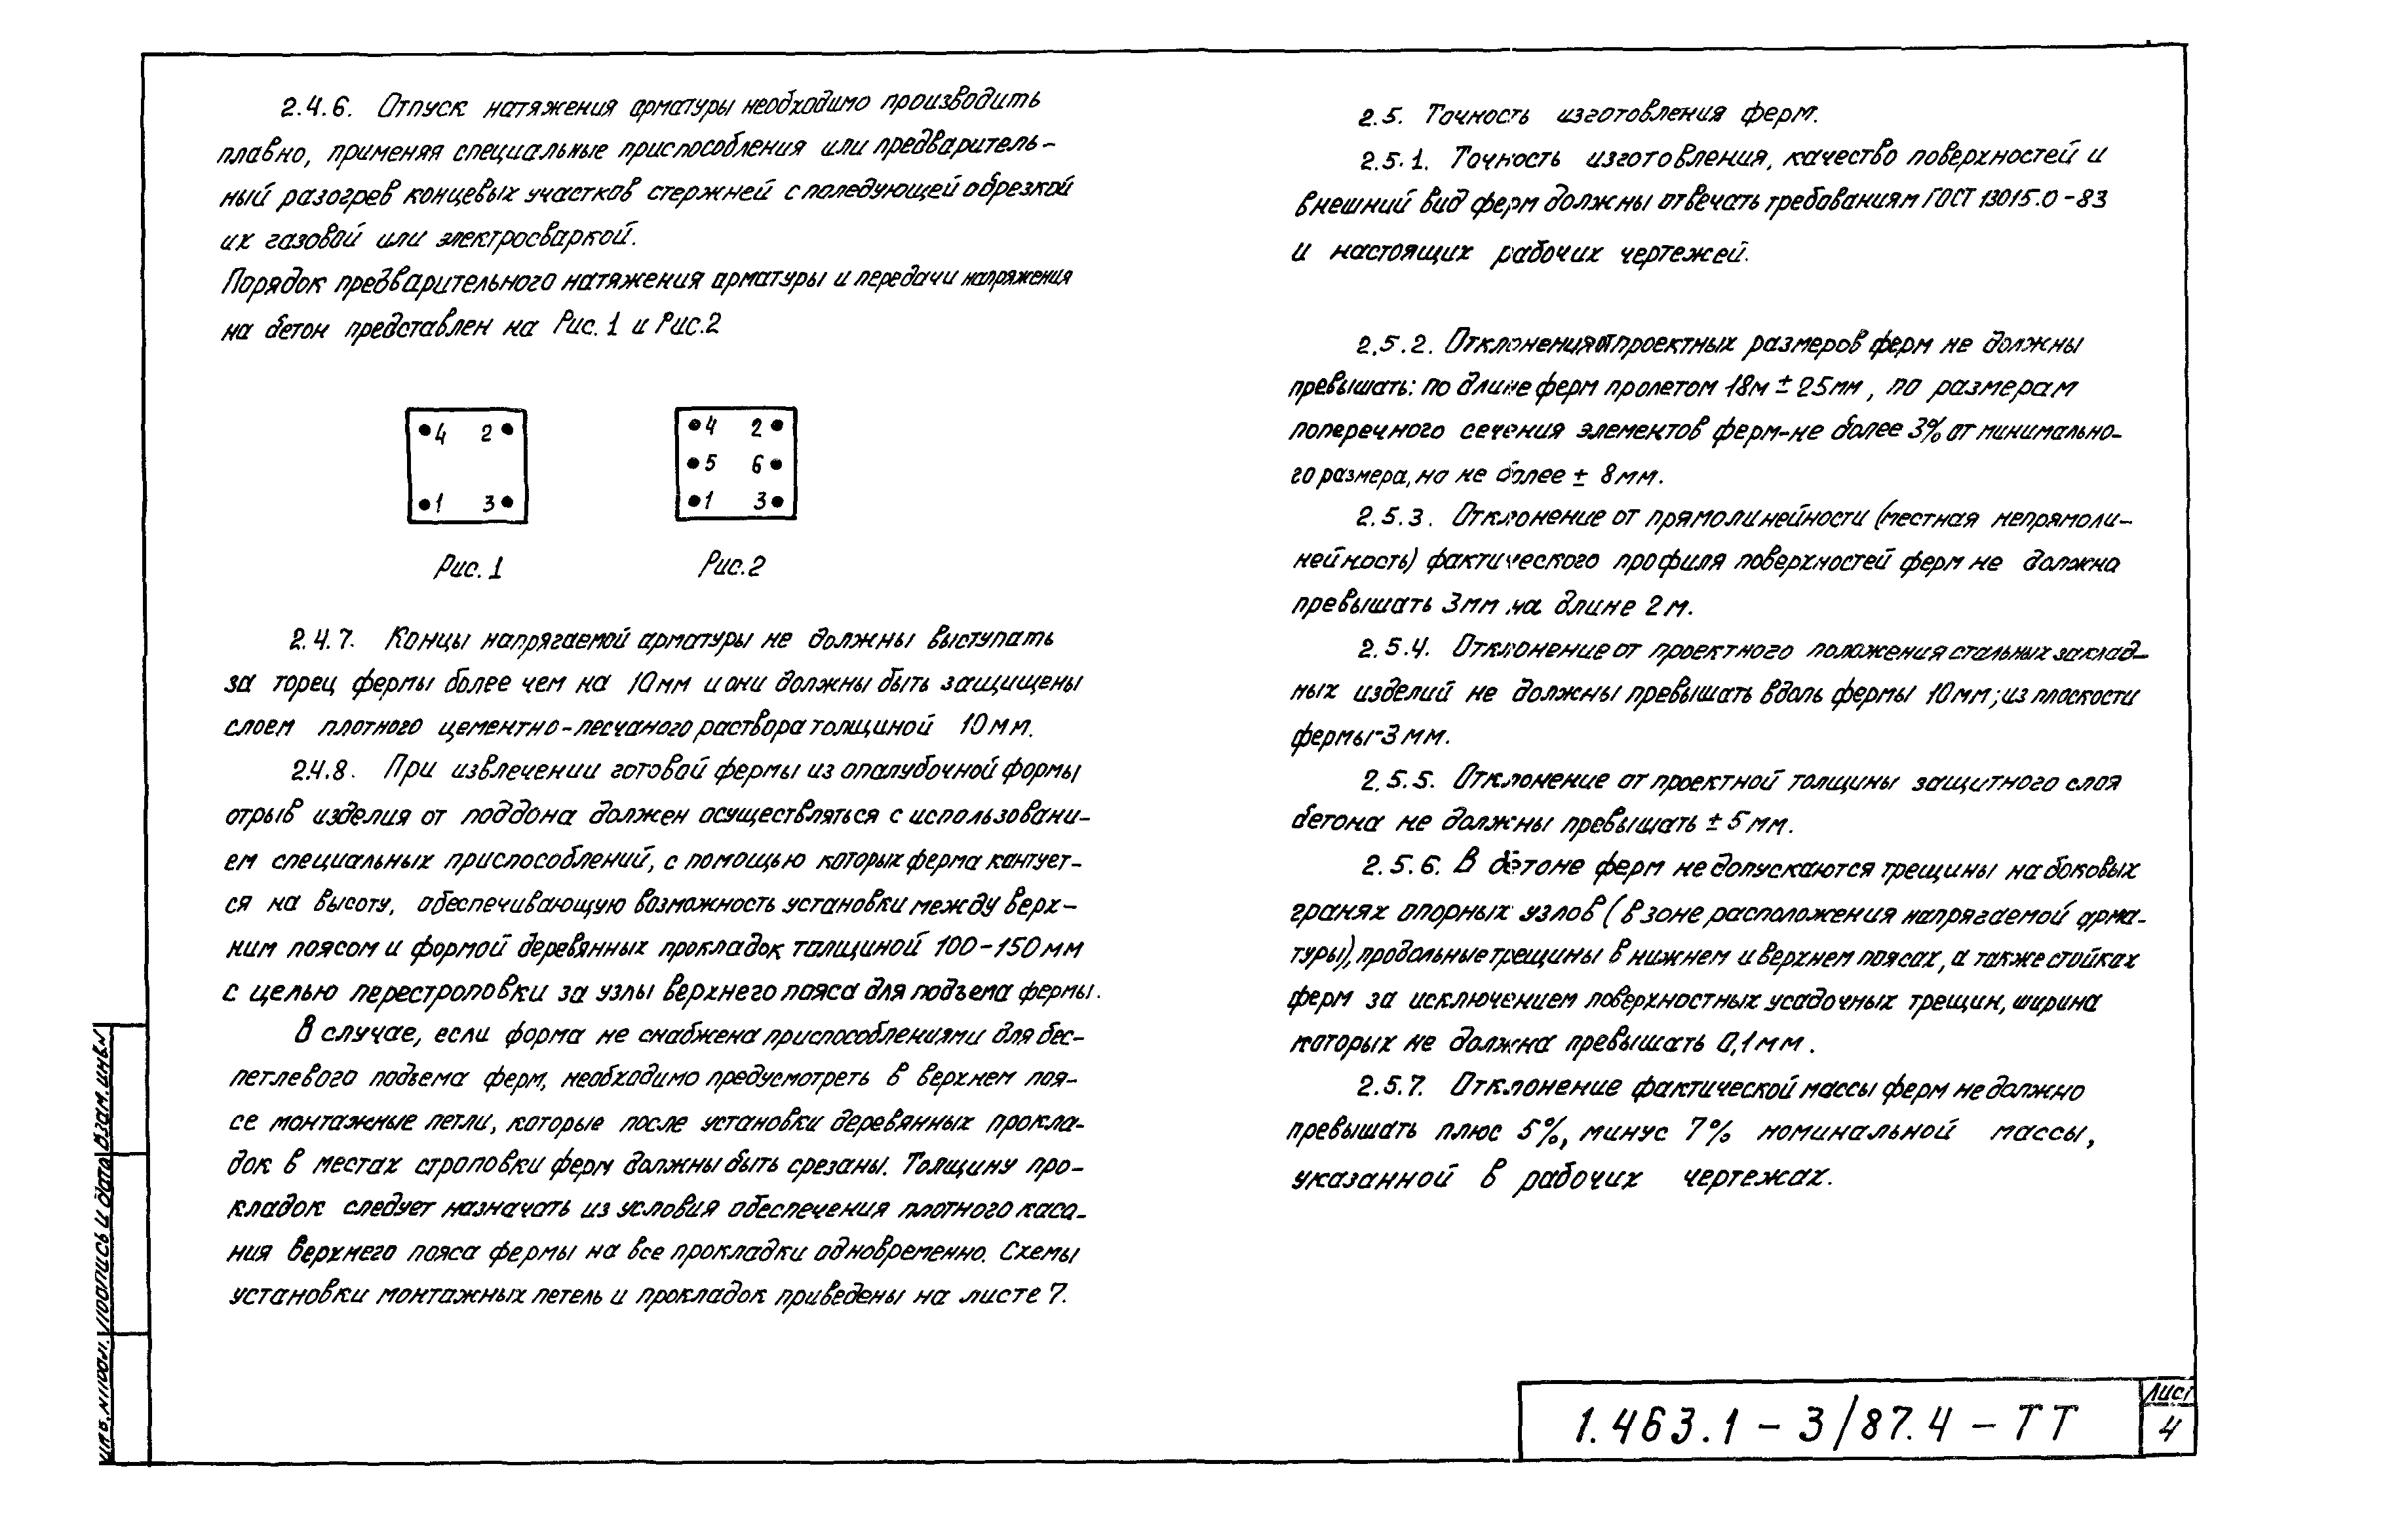 2.4.6. Отпуск натяжения арматуры необходимо производить
плавно, применяя специальные приспособления или предваритель-
ный разогрев концевых участков стержней с поледующей обрезкой
их газовой или электросваркой.
Порядок предварительного натяжения арматуры и передачи напряжения
на бетон представлен на Рис. 1 и Рис.2
4 2
1 3
Рис. 1
4 2
5 6
1 3
Рис.2
2.4.7. Концы напрягаемой арматуры не должны выступать
за торец фермы более чем на 10мм и они должны быть защищены
слоем плотного цементно-песчаного раствора толщиной 10мм.
2.4.8. При извлечении готовой фермы из опалубочной формы
отрыв изделия от поддона должен осуществляться с использовани-
ем специальных приспособлений, с помощью которых ферма кантует-
ся на высоту, обеспечивающую возможность установки между верх-
ним поясом и формой деревянных прокладок толщиной 100-150мм
с целью перестроповки за узлы верхнего пояса для подъема фермы.
В случае, если форма не снабжена приспособлениями для бес-
петлевого подъема ферм, необходимо предусмотреть в верхнем поя-
се монтажные петли, которые после установки деревянных прокла-
док в местах строповки ферм должны быть срезаны. Толщину про-
кладок следует назначать из условия обеспечения плотного каса-
ния верхнего пояса фермы на все прокладки одновременно. Схемы
установки монтажных петель и прокладок приведены на листе 7.
2.5. Точность изготовления ферм.
2.5.1. Точность изготовления, качество поверхностей и
внешний вид ферм должны отвечать требованиям ГОСТ 13015.0-83
и настоящих рабочих чертежей.
2.5.2. Отклонения от проектных размеров ферм не должны
превышать: по длине ферм пролетом 18м ± 25мм, по размерам
поперечного сечения элементов ферм-не более 3% от минимально-
го размера, но не более ± 8мм.
2.5.3. Отклонение от прямолинейности (местная непрямоли-
нейность) фактического профиля поверхностей ферм не должна
превышать 3мм на длине 2м.
2.5.4. Отклонение от проектного положения стальных заклад-
ных изделий не должны превышать вдоль фермы 10мм; из плоскости
фермы-3мм.
2.5.5. Отклонение от проектной толщины защитного слоя
бетона не должны превышать ± 5мм.
2.5.6. В бетоне ферм не допускаются трещины на боковых
гранях опорных узлов (в зоне расположения напрягаемой арма-
туры), продольные трещины в нижнем и верхнем поясах, а также стойках
ферм за исключением поверхностных усадочных трещин, ширина
которых не должна превышать 0,1мм.
2.5.7. Отклонение фактической массы ферм не должно
превышать плюс 5%, минус 7% номинальной массы,
указанной в рабочих чертежах.
Инв.№подл. Подпись и дата Взам.инв.№
1.463.1-3/87.4-ТТ
Лист
4